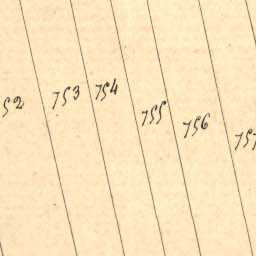 52
753
754
755
756
757